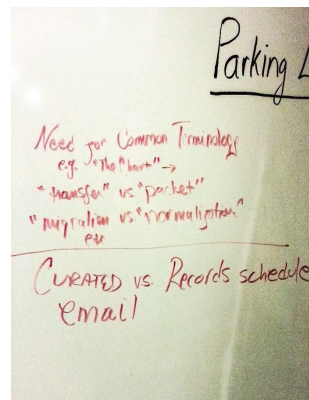 Parking L
Need for Common Terminology
e.g. "The Chart" →
"transfer" vs "packet"
"migration vs "normalization"
CURATED vs. Records schedule
email